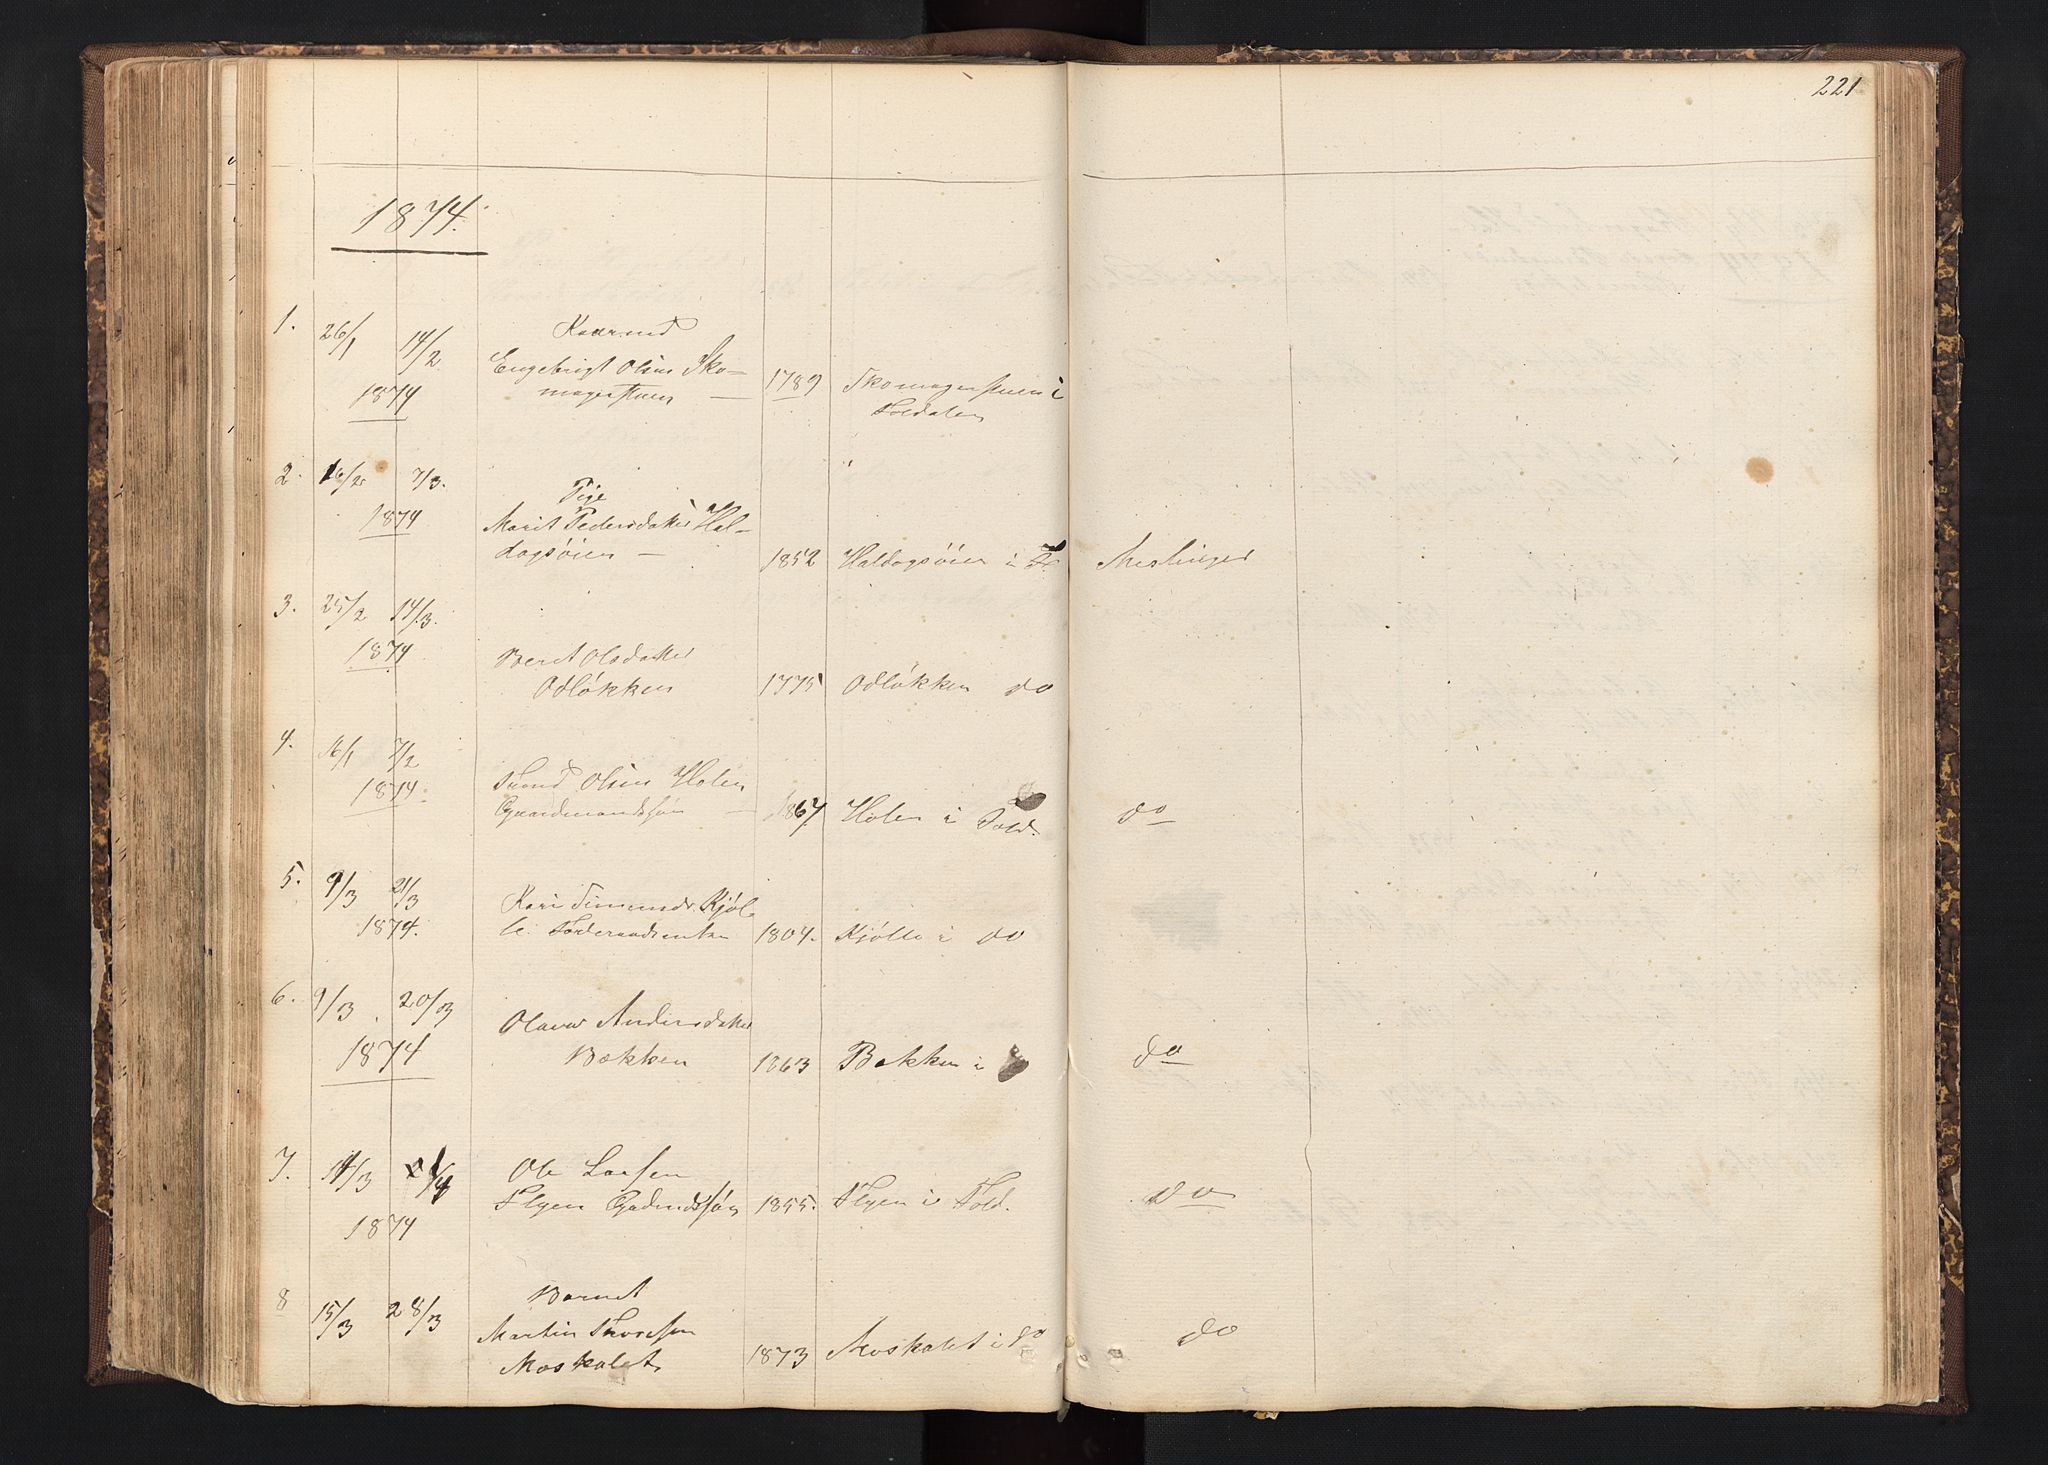 221
1874.
1. 26/1 14/2 Kaarmd
1874 Engebrigt Olsen Sko-
magerstuen — 1789 Skomagerstuen i
Foldalen
2. 16/2 7/3. Pige
1874 Marit Pedersdatter Hal-
dogsøien — 1852 Haldogsøien i F. Meslinger
3. 25/2 14/3.
1874 Beret Olsdatter
Odløkken 1775 Odløkken do
4. 16/1 7/2
1874 Trond Olsen Holen
Gaardmandssøn — 1867. Holen i Fold. do
5. 9/3 21/3
1874. Kari Simensdr. Kjøl-
le. 1804. Kjølle i do
6. 9/3 20/3 Olava Andersdatter
1874 Bækken 1863 Bækken i do
7. 14/3 1/4 Ole Larsen
1874 Flyen Gaardmdssøn 1855. Flyen i Fold. do
8 15/3 28/3 Barnet
Martin Thoresen
Moskalet 1873 Moskalet i do do